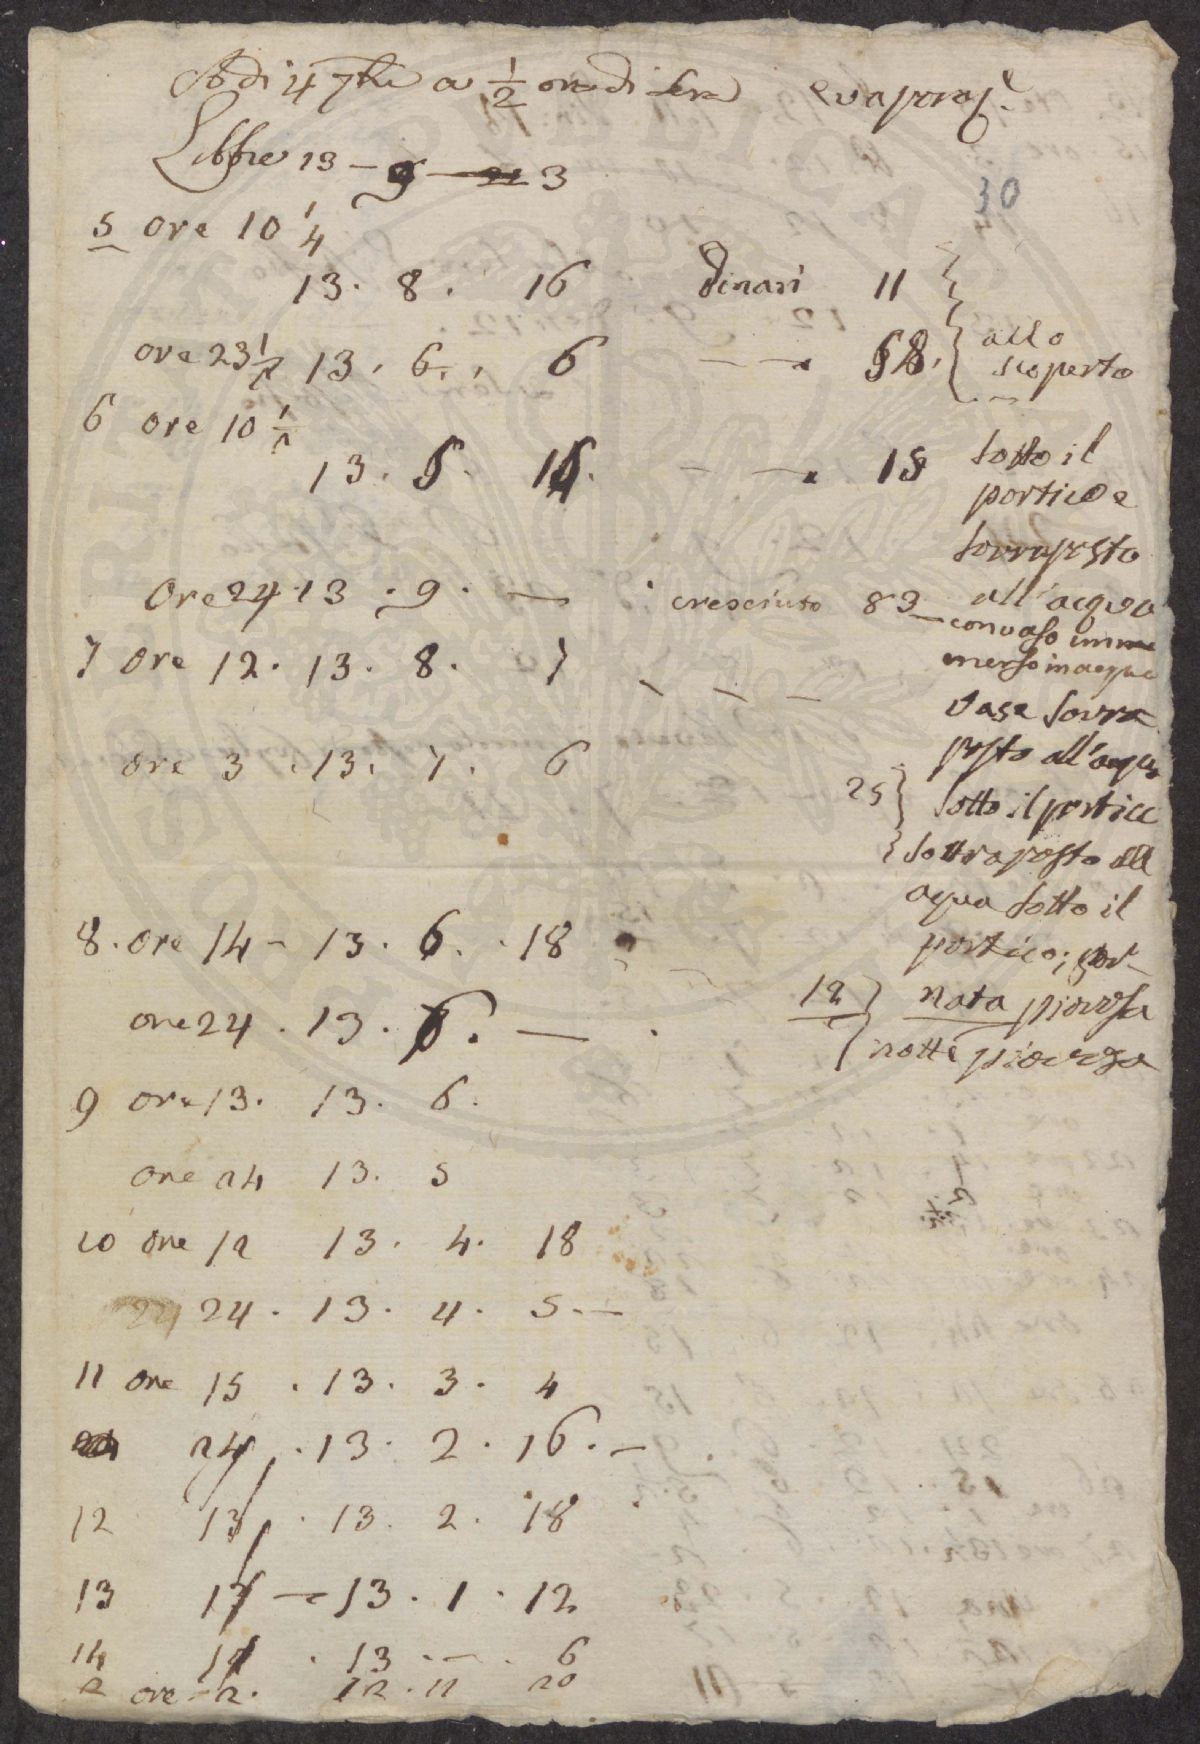 A di 4 7bre a 1/2 ora di sera evaporaze
Libbre 13 – 9 – 3
30
5 ore 10 1/4
13. 8. 16 dinari 11
ore 23 1/2 13. 6. 6 58. allo
scoperto
6 ore 10 1/2
13. 5. 16. 15 sotto il
portico e
sovraposto
ore 24 13. 9. — cresciuto 83 all'acqua
con vaso im
merso in acqua
7 ore 12. 13. 8. 7
vase sovra
posto all'acqua
ore 3. 13. 7. 6
25 sotto il portico
sottraposto all
aqua sotto il
8. ore 14 – 13. 6. 18
portico; gior
12 nata piovosa
ore 24. 13. 6. —
notte piovosa
9 ore 13. 13. 6.
ore 24 13. 5
10 ore 12 13. 4. 18
24. 13. 4. 5. —
11 ore 15. 13. 3. 4
24. 13. 2. 16. —
12 13. 13. 2. 18
13 13 — 13. 1. 12
14 . 13. — . 6
2 ore 2. 12. 11 20